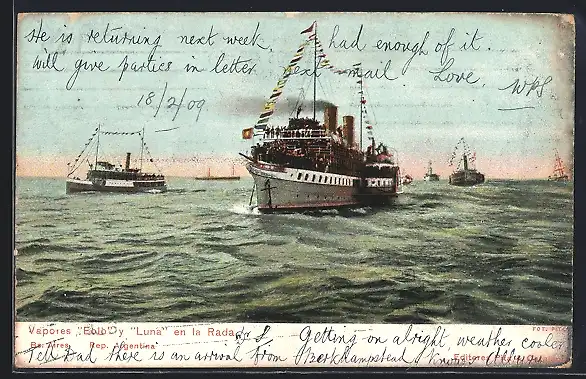 He is returning next week, had enough of it.
will give parties in letter next mail. Love, WPS
18/2/09
Vapores "Eolo" y "Luna" en la Rada
Bs. Aires Rep. Argentina
Getting on alright weather cooler
Tell Dad there is an arrival from Berkhampstead Knows